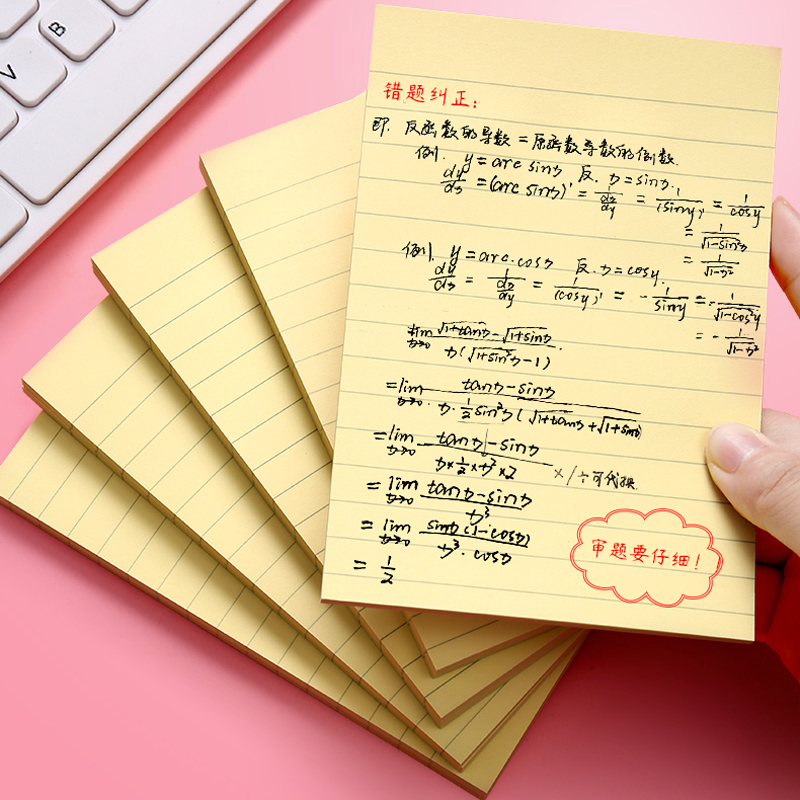 V B
错题纠正:
即. 反函数的导数=原函数导数的倒数.
例. y=arc sinx 反. x=sinx.
dy/dx = (arc sinx)' = 1/(dx/dy) = 1/(siny)' = 1/cosy
= 1/√(1-sin²x)
= 1/√(1-x²)
例. y=arc.cosx 反. x=cosy.
dy/dx = 1/(dx/dy) = 1/(cosy)' = -1/siny = -1/√(1-cos²y)
= -1/√(1-x²)
lim x→0 (√(1+tanx)-√(1+sinx))/(x(√(1+sin²x)-1)).
=lim x→0 (tanx-sinx)/(x·1/2sin²x(√(1+tanx)+√(1+sinx))
=lim x→0 (tanx-sinx)/(x×1/2×x²×2) ×/÷可代换.
=lim x→0 (tanx-sinx)/x³
=lim x→0 (sinx(1-cosx))/(x³·cosx)
=1/2
审题要仔细!